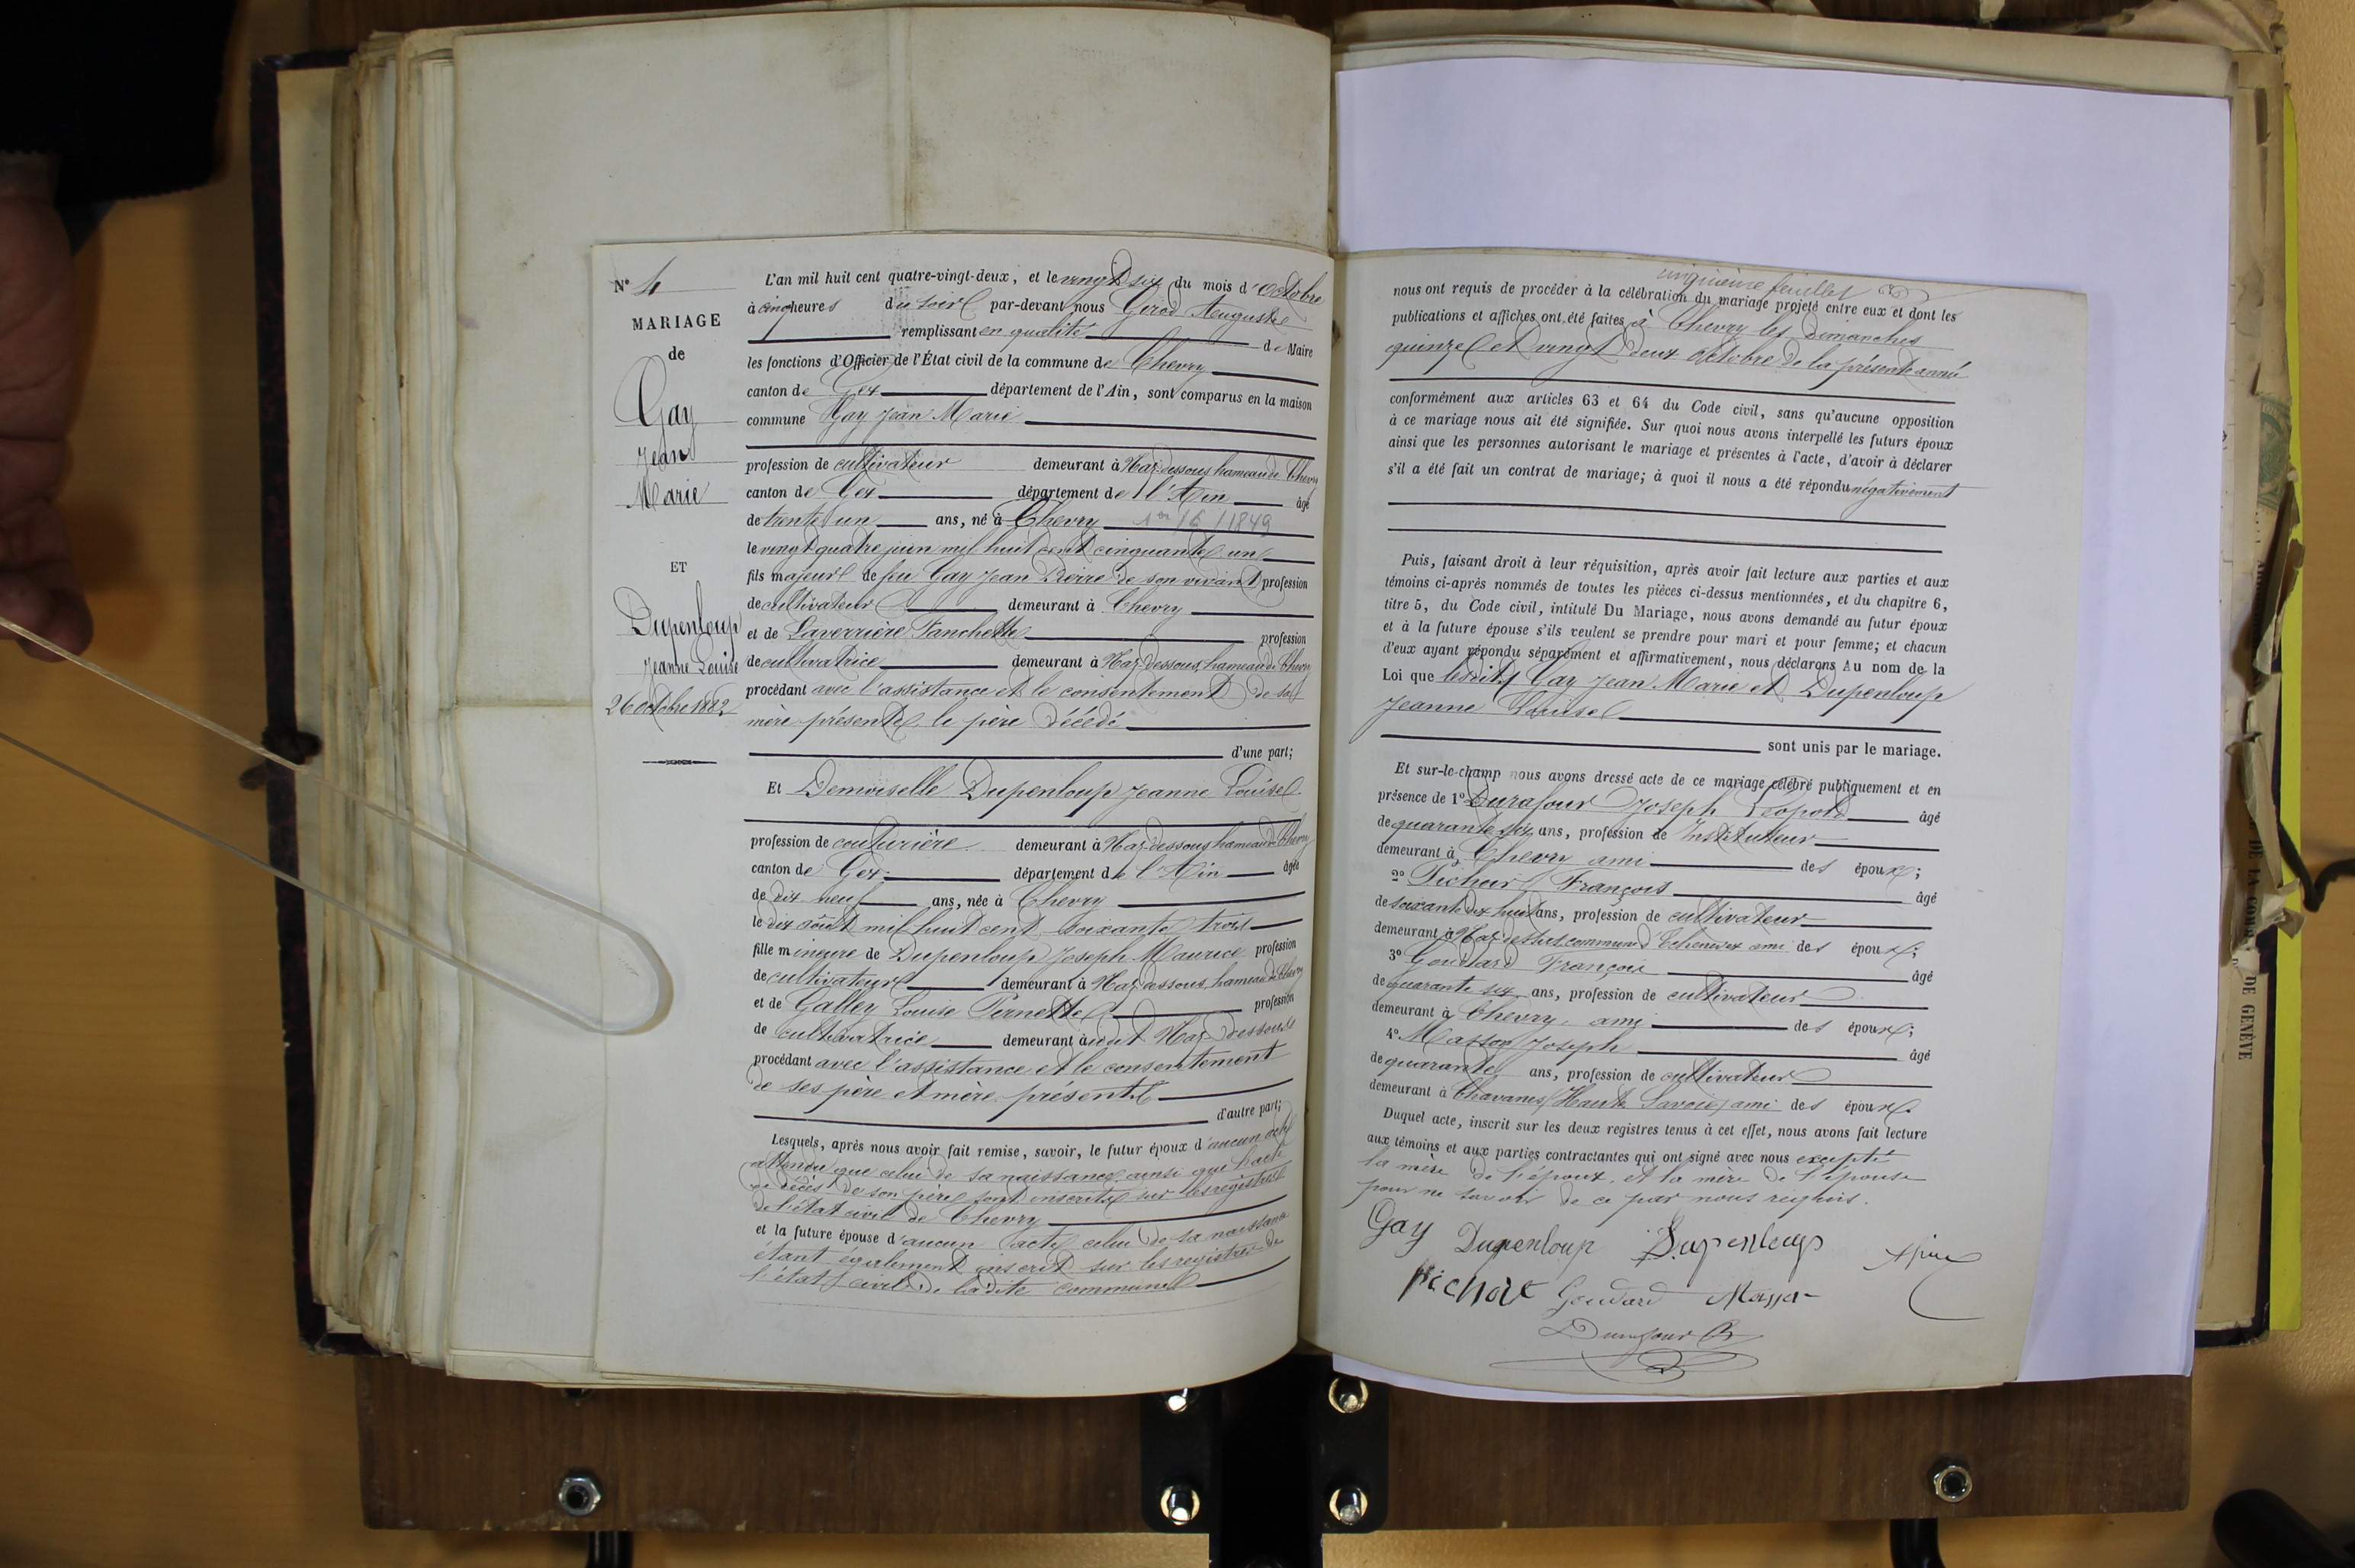 N° 4
MARIAGE
de
Gay
Jean
Marie
ET
Dupenloup
Jeanne Louise
26 octobre 1882
L'an mil huit cent quatre-vingt-deux, et le vingt six du mois d'Octobre
à cinq heures du soir par-devant nous Girod Auguste
remplissant en qualité de Maire
les fonctions d'Officier de l'État civil de la commune de Chevry
canton de Gex département de l'Ain, sont comparus en la maison
commune Gay Jean Marie
profession de cultivateur demeurant à Naz dessous hameau de Chevry
canton de Gex département de l'Ain âgé
de trente un ans, né à Chevry 1er /6 /1849
le vingt quatre juin mil huit cent cinquante un
fils majeur de feu Gay Jean Pierre de son vivant profession
de cultivateur demeurant à Chevry
et de Laverrière Fanchette profession
de cultivatrice demeurant à Naz dessous, hameau de Chevry
procédant avec l'assistance et le consentement de sa
mère présente, le père décédé
d'une part;
Et Demoiselle Dupenloup Jeanne Louise
profession de couturière demeurant à Naz dessous hameau de Chevry
canton de Gex département de l'Ain âgée
de dix neuf ans, née à Chevry
le dix août mil huit cent soixante trois
fille mineure de Dupenloup Joseph Maurice profession
de cultivateur demeurant à Naz dessous, hameau de Chevry
et de Galley Louise Pernette profession
de cultivatrice demeurant audit Naz dessous
procédant avec l'assistance et le consentement
de ses père et mère présents
d'autre part;
Lesquels, après nous avoir fait remise, savoir, le futur époux d'aucun acte
attendu que celui de sa naissance ainsi que l'acte
de décès de son père sont inscrits sur les registres
de l'état civil de Chevry
et la future épouse d'aucun acte celui de sa naissance
étant également inscrit sur les registres de
l'état civil de ladite commune
cinquième feuillet
nous ont requis de procéder à la célébration du mariage projeté entre eux et dont les
publications et affiches ont été faites à Chevry les Dimanches
quinze et vingt deux octobre de la présente année
conformément aux articles 63 et 64 du Code civil, sans qu'aucune opposition
à ce mariage nous ait été signifiée. Sur quoi nous avons interpellé les futurs époux
ainsi que les personnes autorisant le mariage et présentes à l'acte, d'avoir à déclarer
s'il a été fait un contrat de mariage; à quoi il nous a été répondu négativement
Puis, faisant droit à leur réquisition, après avoir fait lecture aux parties et aux
témoins ci-après nommés de toutes les pièces ci-dessus mentionnées, et du chapitre 6,
titre 5, du Code civil, intitulé Du Mariage, nous avons demandé au futur époux
et à la future épouse s'ils veulent se prendre pour mari et pour femme; et chacun
d'eux ayant répondu séparément et affirmativement, nous déclarons Au nom de la
Loi que lesdits Gay Jean Marie et Dupenloup
Jeanne Louise
sont unis par le mariage.
Et sur-le-champ nous avons dressé acte de ce mariage célébré publiquement et en
présence de 1° Durafour Joseph Léopold âgé
de quarante six ans, profession de Instituteur
demeurant à Chevry ami des époux;
2° François âgé
de soixante dix huit ans, profession de cultivateur
demeurant à Naz dessus commune d'Echenevex ami des époux;
3° Goudard François âgé
de quarante six ans, profession de cultivateur
demeurant à Chevry, ami des époux;
4° Masson Joseph âgé
de quarante ans, profession de cultivateur
demeurant à Chavanes (Haute Savoie) ami des époux.
Duquel acte, inscrit sur les deux registres tenus à cet effet, nous avons fait lecture
aux témoins et aux parties contractantes qui ont signé avec nous excepté
la mère de l'époux, et la mère de l'épouse
pour ne savoir de ce par nous requis.
Gay Dupenloup Dupenloup
Goudard Masson
Durafour
DE GENÈVE